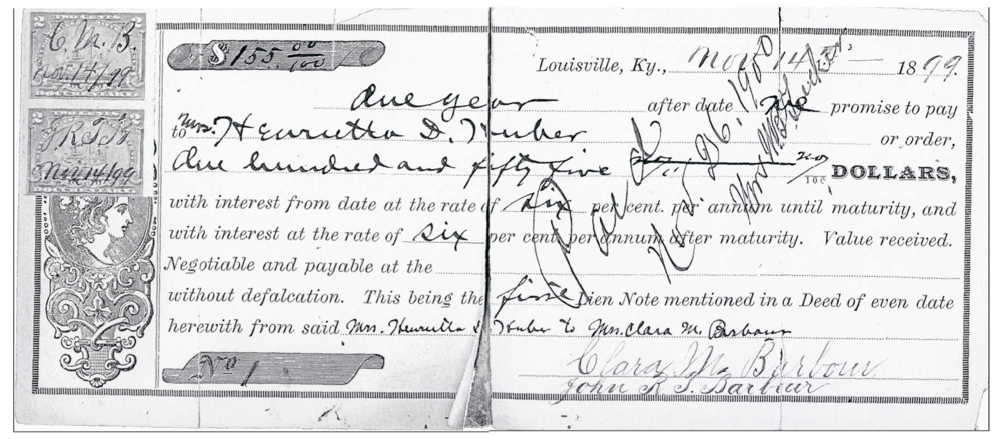 2 2
C. M. B.
Nov. 14/99
2 2
2 2
J.R.S.B.
Nov 14/99
2 2
$155. 00/100
Louisville, Ky., Nov 14 — 1899.
One year after date we promise to pay
to Mrs. Henrietta D. Huber or order,
One hundred and fifty five no/100 DOLLARS,
with interest from date at the rate of six per cent. per annum until maturity, and
with interest at the rate of six per cent. per annum after maturity. Value received.
Negotiable and payable at the
without defalcation. This being the first Lien Note mentioned in a Deed of even date
herewith from said Mrs. Henrietta D. Huber to Mrs. Clara M. Barbour
No 1
Clara M. Barbour
John R. S. Barbour
Paid
Nov. 26. 1900